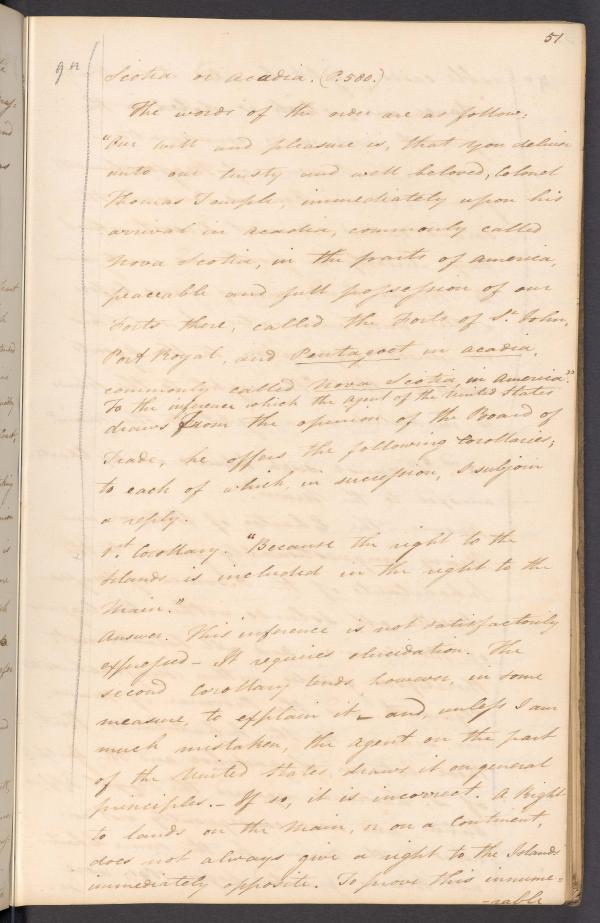 51
Scotia or Acadia. (P. 580.)
The words of the order are as follow:
"Our will and pleasure is, that you deliver
unto our trusty and well beloved, Colonel
Thomas Temple, immediately upon his
arrival in Acadia, commonly called
Nova Scotia, in the parts of America,
peaceable and full possession of our
Forts there, called the Forts of St. John,
Port Royal, and Pentagoet in Acadia,
commonly called Nova Scotia in America."
To the inference which the agent of the United States
draws from the opinion of the Board of
Trade, he offers the following Corollaries;
to each of which, in succession, I subjoin
a reply.
1st. Corollary. "Because the right to the
Islands is included in the right to the
Main."
Answer. This inference is not satisfactorily
expressed - It requires elucidation. The
second Corollary tends, however, in some
measure, to explain it - and, unless I am
much mistaken, the agent on the part
of the United States, draws it on general
principles. - If so, it is incorrect. A Right
to lands on the Main, or on a Continent,
does not always give a right to the Islands
immediately opposite. To prove this innume=
=rable